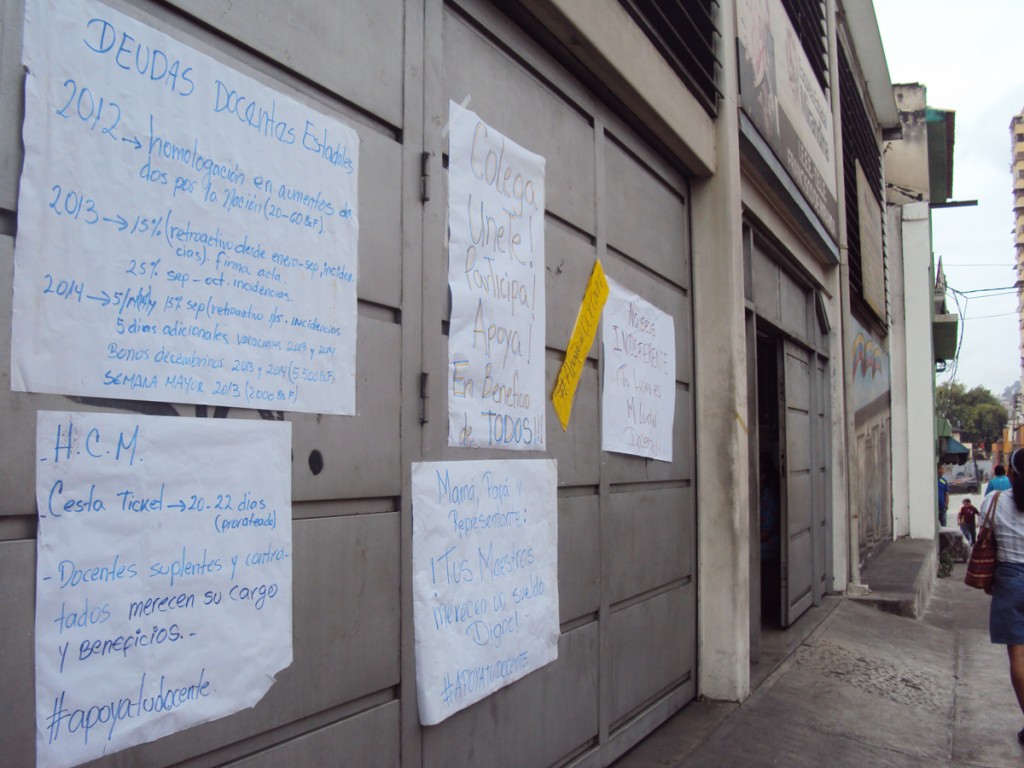 DEUDAS DOCENTES ESTADALES
2012 → homologación en aumentos da
dos por la Nación (20-60 BsF).
2013 → 15% (retroactivo desde enero-sep, inciden
cias). firma acta.
25% sep-oct. incidencias.
2014 → 5/may 15% sep/retroactivo
incidencias
5 días adicionales vacaciones 2013 y 2014
Bonos decembrinos 2013 y 2014 (5.500 BsF
SEMANA MAYOR 2013 (2000 BsF)
- H.C.M.
- Cesta Ticket → 20-22 días
(prorateado)
- Docentes suplentes y contra-
tados merecen su cargo
y Beneficios.-
#apoyatudocente
Colega
Únete!
Participa!
Apoya!
En Beneficio
de TODOS!!!
Mamá, Papá y
Representante:
¡Tus Maestros
merecen un sueldo
Digno!
#APOYATUDOCENTE
No seas
INDIFERENTE
¡Tu Luchas
Mi Lucha